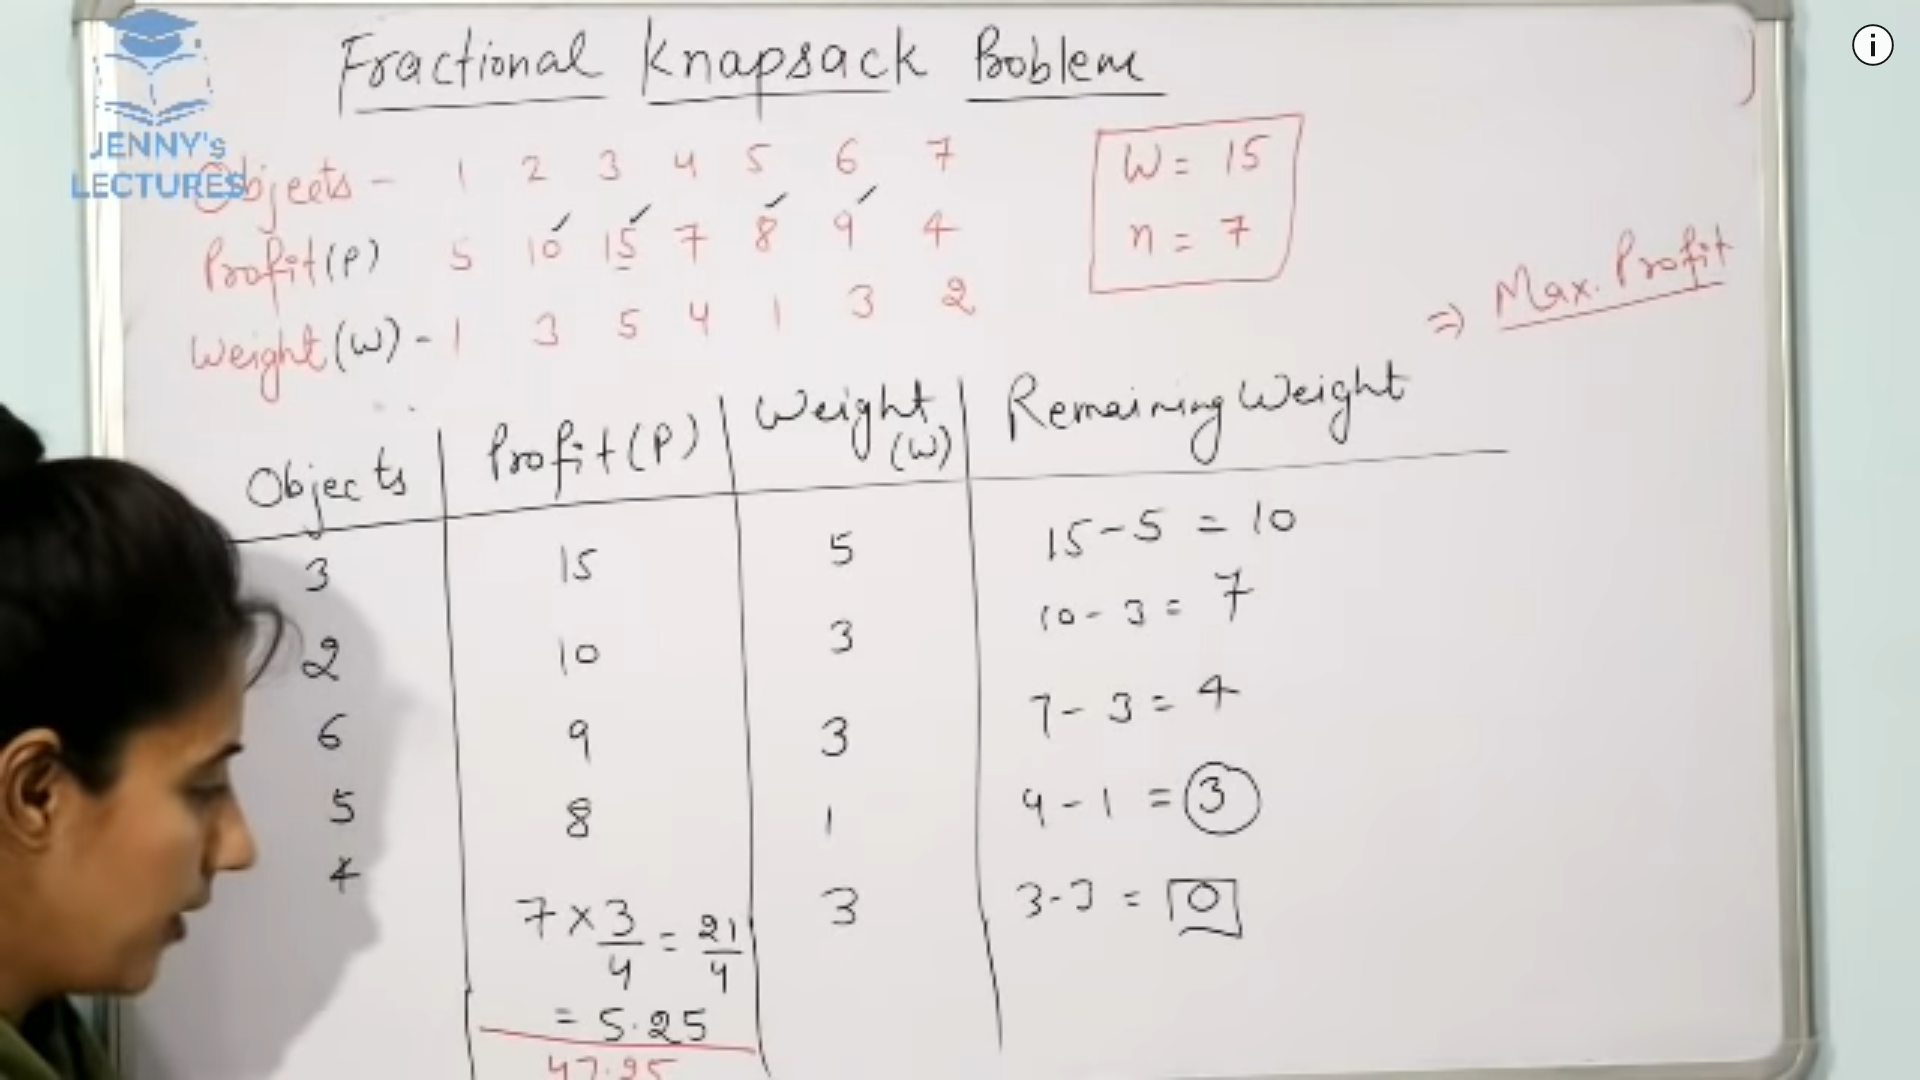 Fractional Knapsack Problem
JENNY's
LECTURES
Objects - 1 2 3 4 5 6 7
Profit (P) 5 10 15 7 8 9 4
Weight (W) - 1 3 5 4 1 3 2
W = 15
n = 7
⇒ Max. Profit
Objects Profit (P) Weight (W) Remaining Weight
3 15 5 15 - 5 = 10
2 10 3 10 - 3 = 7
6 9 3 7 - 3 = 4
5 8 1 4 - 1 = 3
4 7 × 3/4 = 21/4 3 3 - 3 = 0
= 5.25
47.25